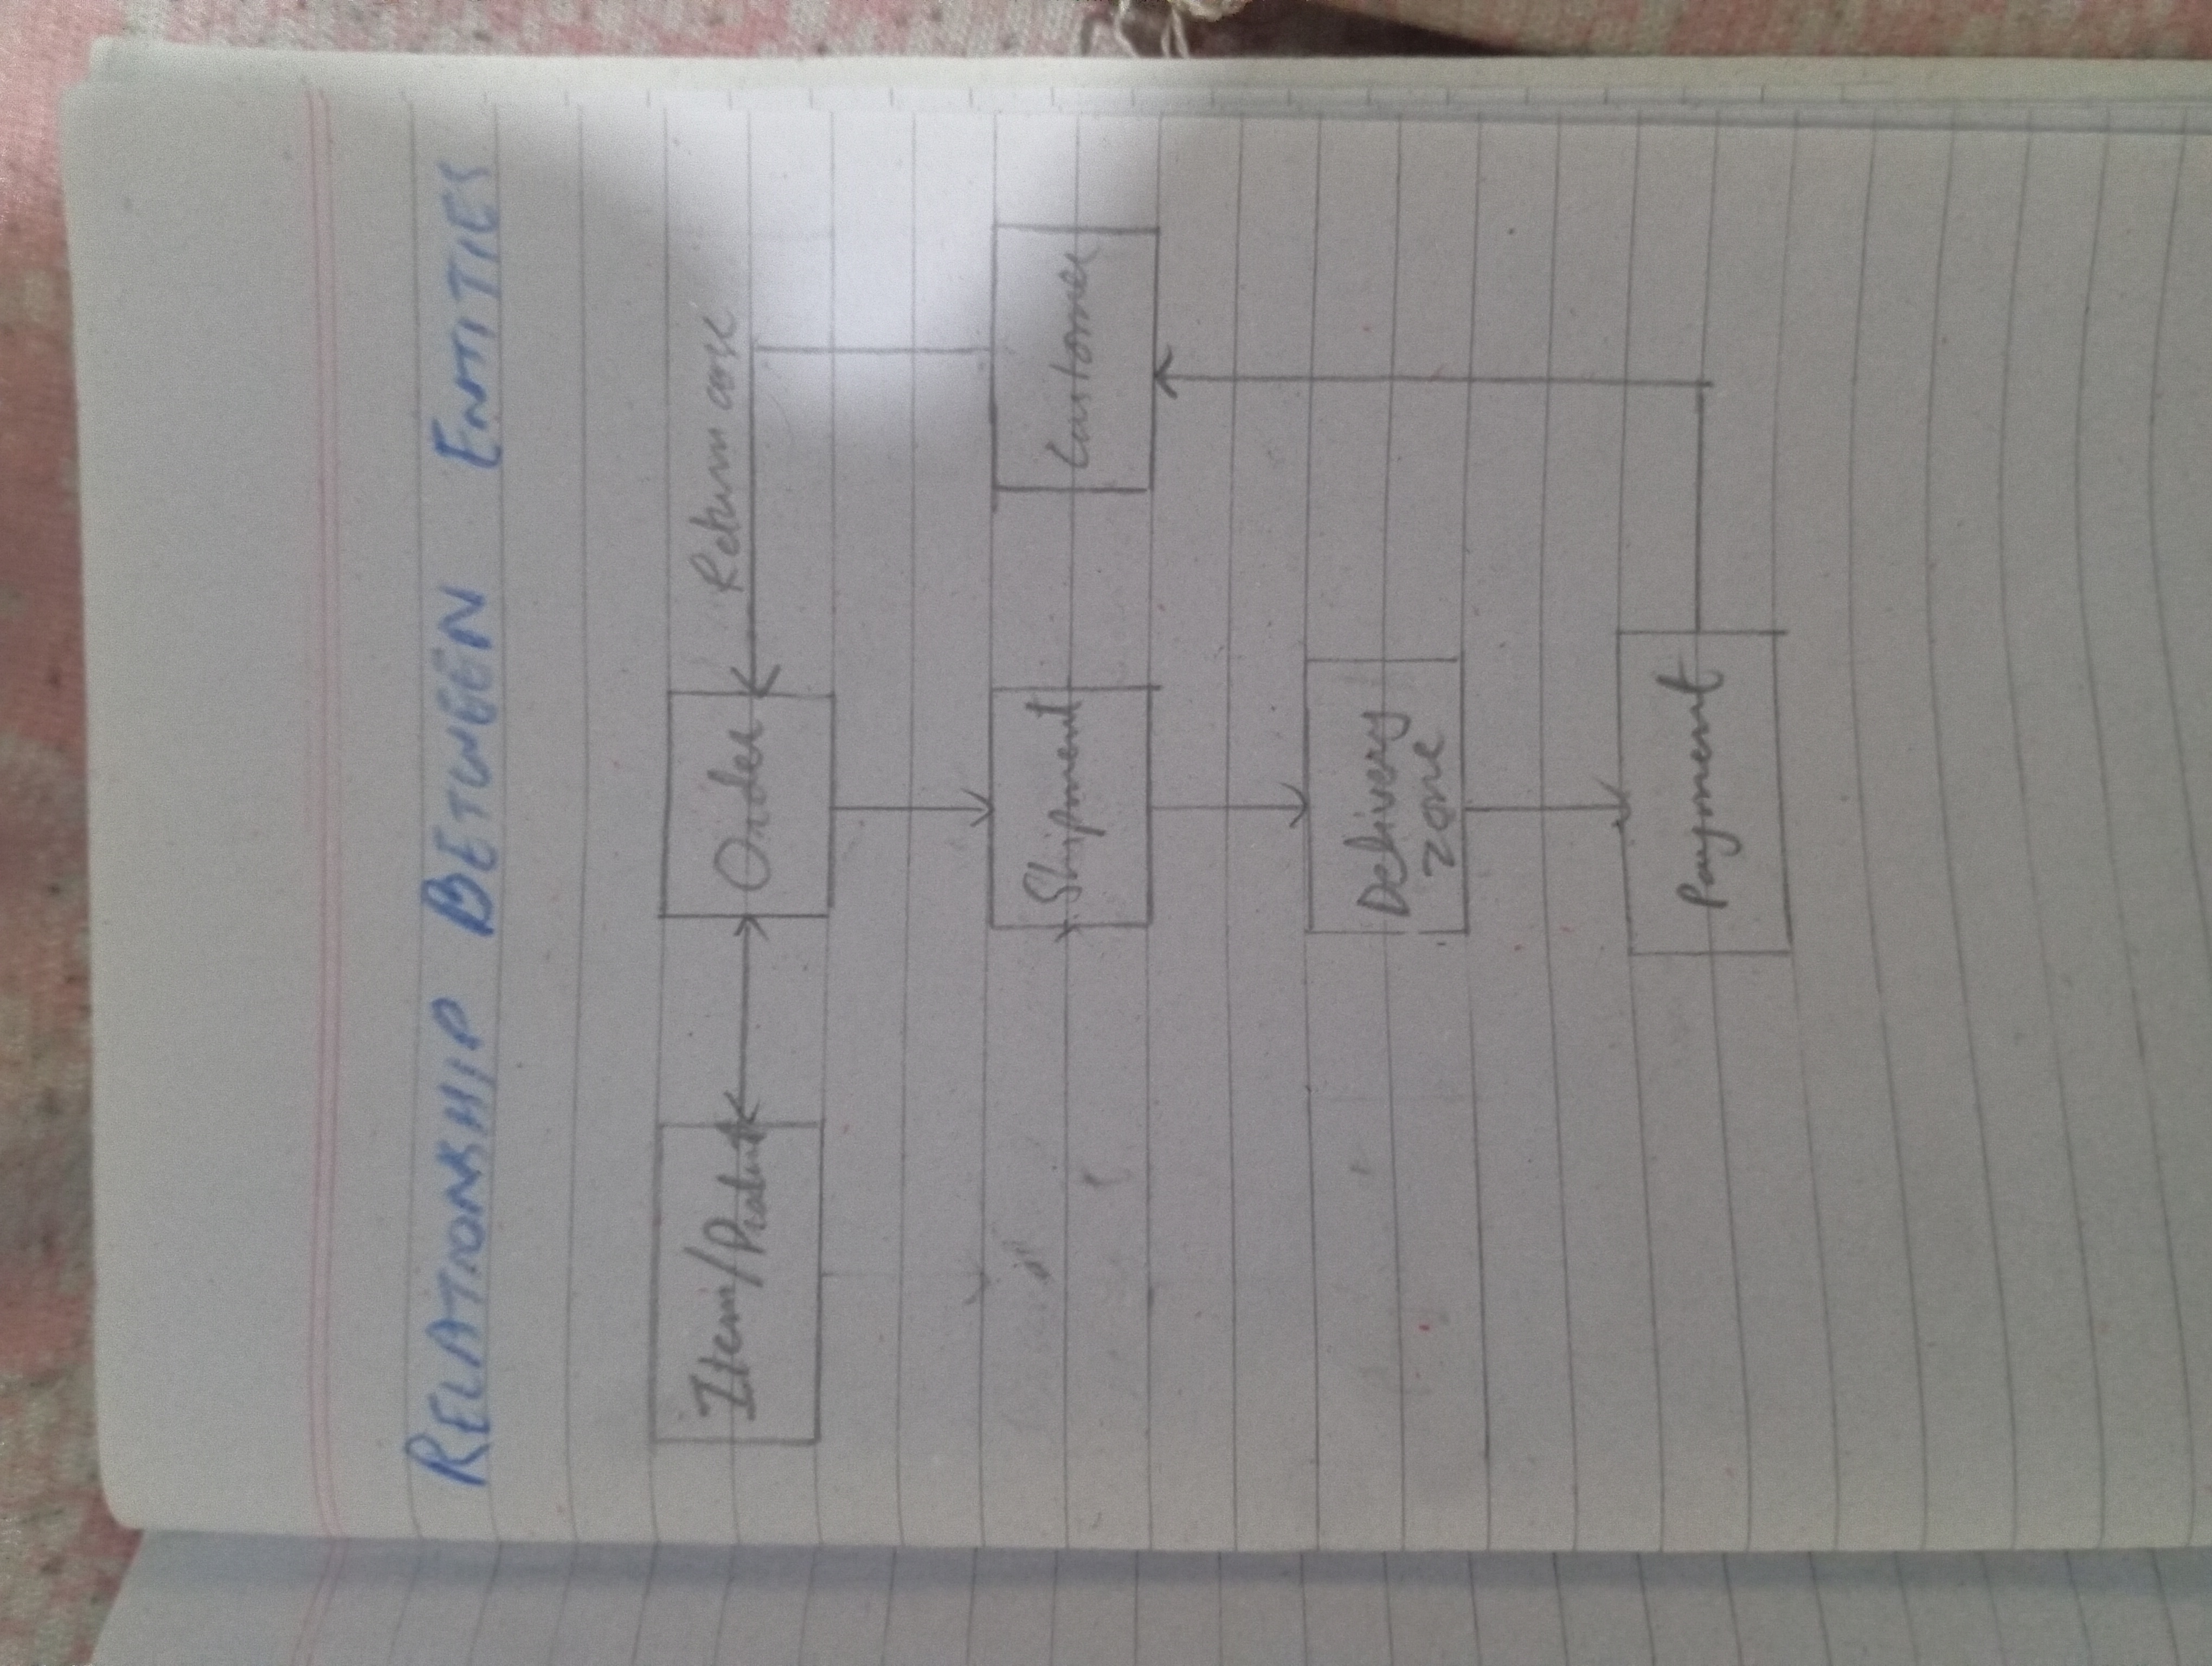 RELATIONSHIP BETWEEN ENTITIES
Item/Product
Order
Return case
Shipment
Customer
Delivery
zone
Payment